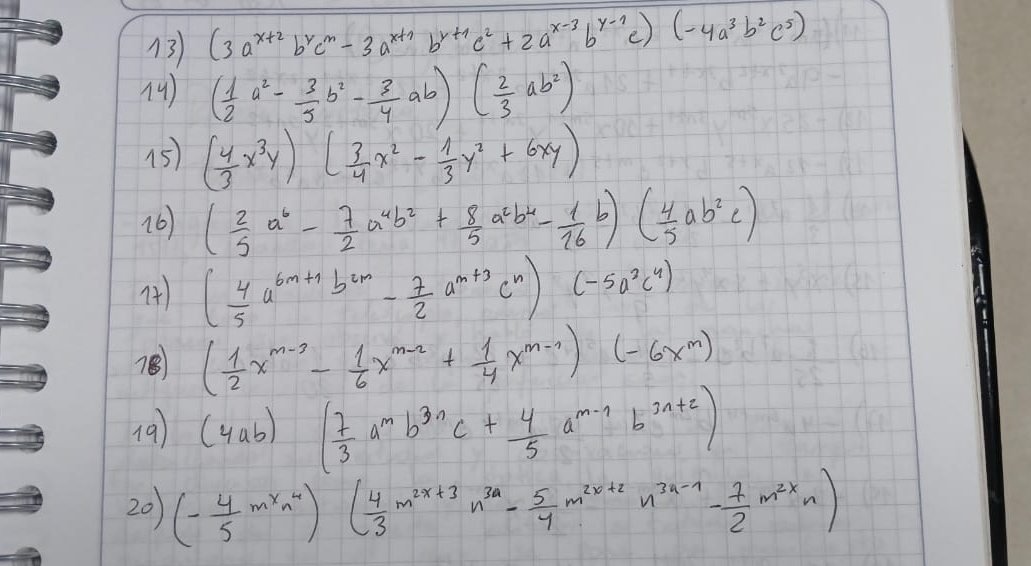 13) (3a^{x+2} b^x c^n - 3a^{x+1} b^{y+1} c^2 + 2a^{x-3} b^{y-1} c) (-4a^3 b^2 c^5)
14) (\frac{1}{2} a^2 - \frac{3}{5} b^2 - \frac{3}{4} ab) (\frac{2}{3} ab^2)
15) (\frac{4}{3} x^3 y) (\frac{3}{4} x^2 - \frac{1}{3} y^2 + 6xy)
16) (\frac{2}{5} a^6 - \frac{7}{2} a^4 b^2 + \frac{8}{5} a^2 b^4 - \frac{1}{16} b) (\frac{4}{5} ab^2 c)
17) (\frac{4}{5} a^{6m+1} b^{2m} - \frac{7}{2} a^{m+3} c^n) (-5a^3 c^4)
18) (\frac{1}{2} x^{m-3} - \frac{1}{6} x^{m-2} + \frac{1}{4} x^{m-1}) (-6x^m)
19) (4ab) (\frac{7}{3} a^m b^{3n} c + \frac{4}{5} a^{m-1} b^{3n+2})
20) (-\frac{4}{5} m^x n^4) (\frac{4}{3} m^{2x+3} n^{3a} - \frac{5}{4} m^{2x+2} n^{3a-1} - \frac{7}{2} m^{2x} n)